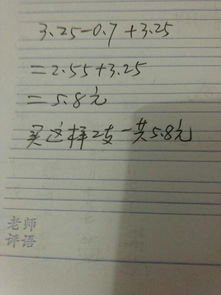 3.25-0.7+3.25
=2.55+3.25
=5.8元
买这样2支一共5.8元
老师
评语